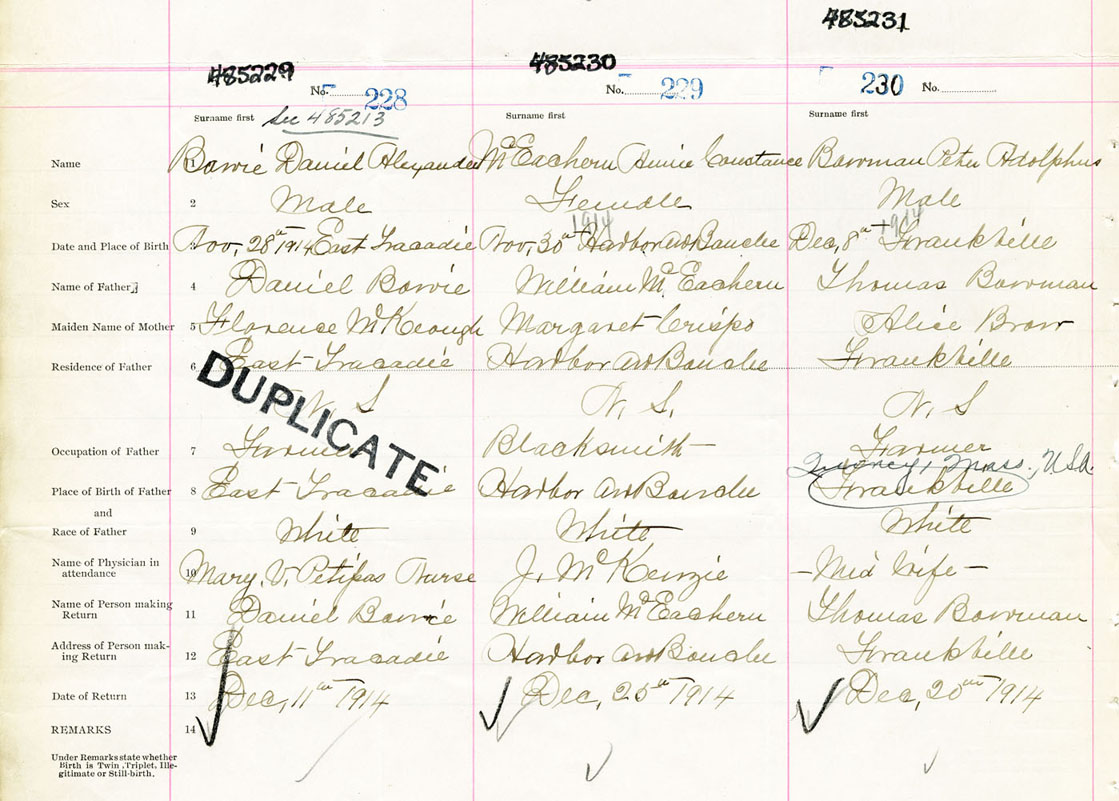 485231
485229 485230
No. 228 No. 229 230 No.
Surname first See 485213 Surname first Surname first
Name 1 Bowie Daniel Alexander McEachern Annie Constance Bowman Peter Adolphus
Sex 2 Male Female Male
1914 1914
Date and Place of Birth 3 Nov, 28th 1914 East Tracadie Nov, 30th Harbor au Bouche Dec, 8th Frankville
Name of Father 4 Daniel Bowie William McEachern Thomas Bowman
Maiden Name of Mother 5 Florence McKeough Margaret Crispo Alice Brow
Residence of Father 6 East Tracadie Harbor au Bouche Frankville
N. S N. S. N. S
DUPLICATE
Occupation of Father 7 Farmer Blacksmith Farmer
Quincy, Mass., USA.
Place of Birth of Father 8 East Tracadie Harbor au Bouche Frankville
and
Race of Father 9 White White White
Name of Physician in
attendance 10 Mary. V. Petipas Nurse J. McKenzie - Mid Wife -
Name of Person making
Return 11 Daniel Bowie William McEachern Thomas Bowman
Address of Person mak-
ing Return 12 East Tracadie Harbor au Bouche Frankville
Date of Return 13 Dec, 11th 1914 Dec, 20th 1914 Dec, 20th 1914
REMARKS 14
Under Remarks state whether
Birth is Twin, Triplet, Ille-
gitimate or Still-birth.